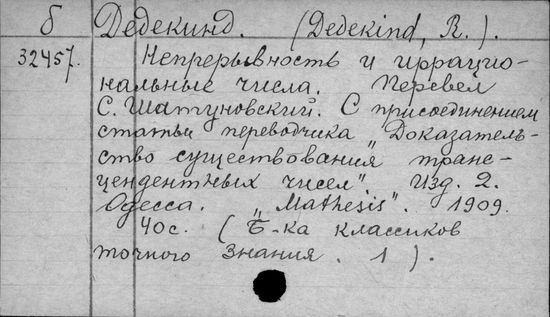 б Дедекинд. (Dedekind, R.).
32457. Непрерывность и иррацио-
нальные числа. Перевел
С. Шатуновский. С присоединением
статьи переводчика „Доказатель-
ство существования транс-
цендентных чисел". Изд. 2.
Одесса. „Mathesis". 1909.
40с. (Б-ка классиков
точного знания. 1).